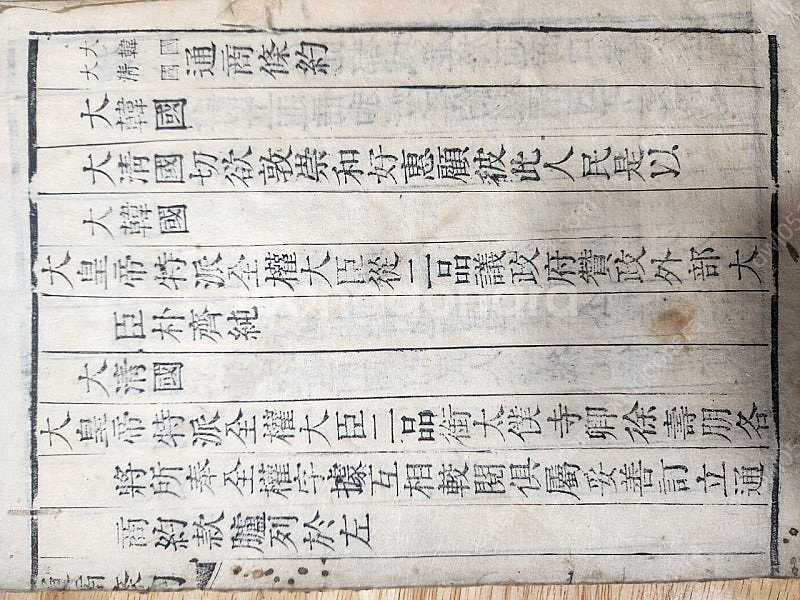 大韓國大清國通商條約
大韓國
大清國切欲敦崇和好惠顧彼此人民是以
大韓國
大皇帝特派全權大臣從二品議政府贊政外部大
臣朴齊純
大清國
大皇帝特派全權大臣二品銜太僕寺卿徐壽朋各
將所奉全權字據互相較閱俱屬妥善訂立通
商約款臚列於左